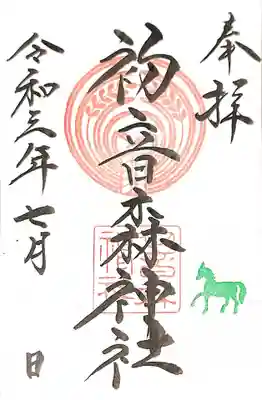 奉拝
初音森神社
令和三年七月 日